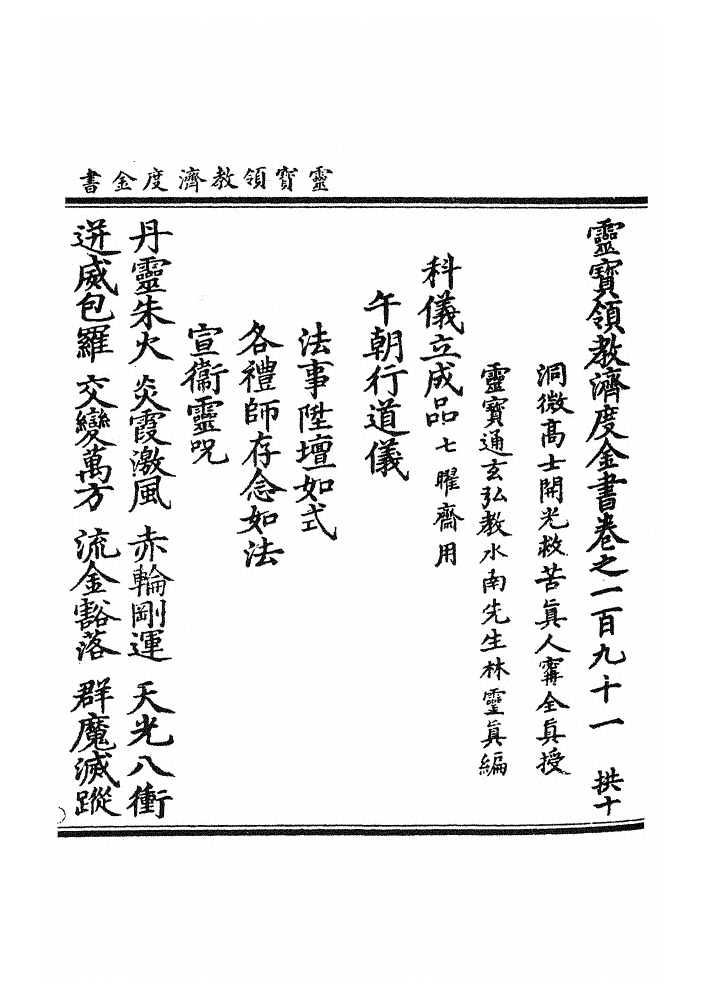 靈寶領教濟度金書
靈寶領教濟度金書卷之一百九十一 拱十
洞微高士開光救苦真人甯全真授
靈寶通玄弘教水南先生林靈真編
科儀立成品七曜齋用
午朝行道儀
法事陞壇如式
各禮師存念如法
宣衞靈咒
丹靈朱火 炎霞激風 赤輪剛運 天光八衝
迸威包羅 交變萬方 流金豁落 群魔滅蹤